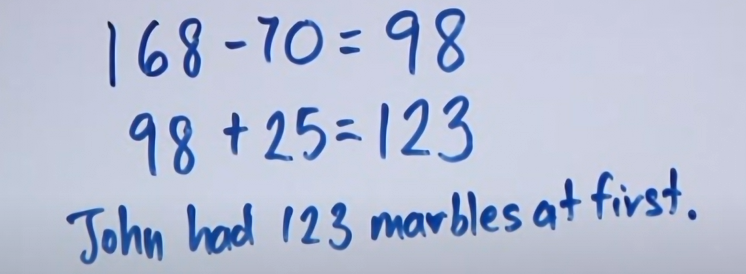 168-70=98
98+25=123
John had 123 marbles at first.